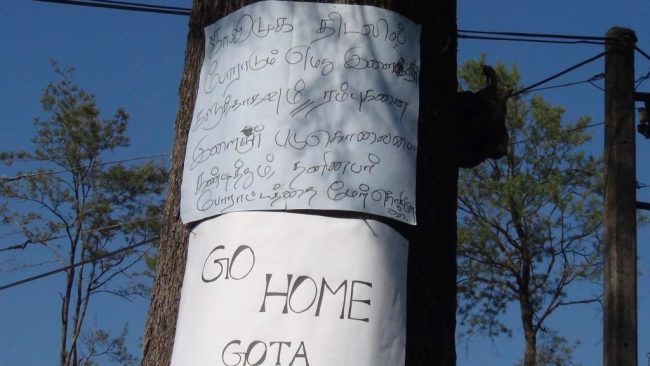 காலிமுக திடலில்
போராடும் எமது
ரம்புக்கனை
இளைஞர் படுகொலையை
கண்டித்தும், தனிநபர்
போராட்டத்தை
GO
HOME
GOTA